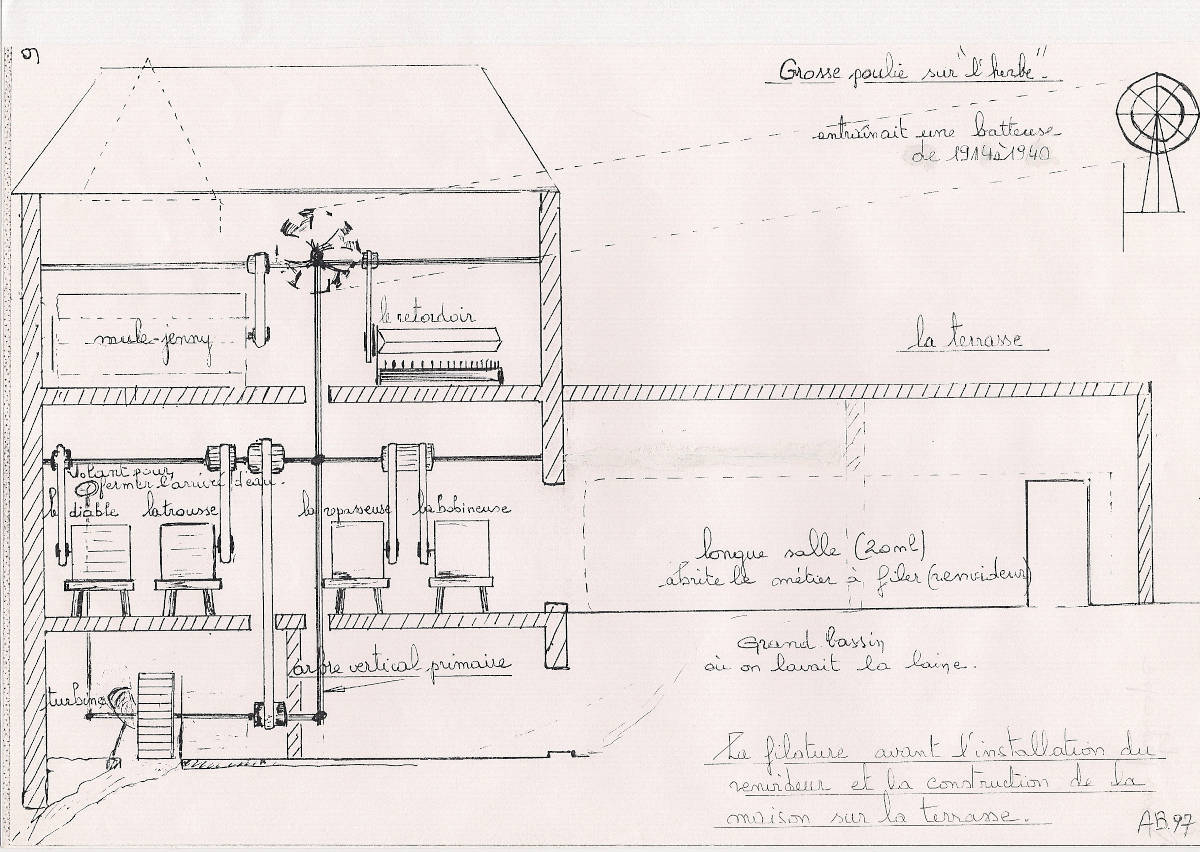 9
Grosse poulie sur "l'herbe".
entraînait une batteuse
de 1914 à 1940
le retordoir
mule-jenny
la terrasse
volant pour
fermer l'arrivé d'eau.
le diable
la trousse
la repasseuse
la bobineuse
longue salle (20ml)
abrite le métier à filer (renvideur)
Grand bassin
où on lavait la laine.
arbre vertical primaire
turbine
La filature avant l'installation du
renvideur et la construction de la
maison sur la terrasse.
AB.97